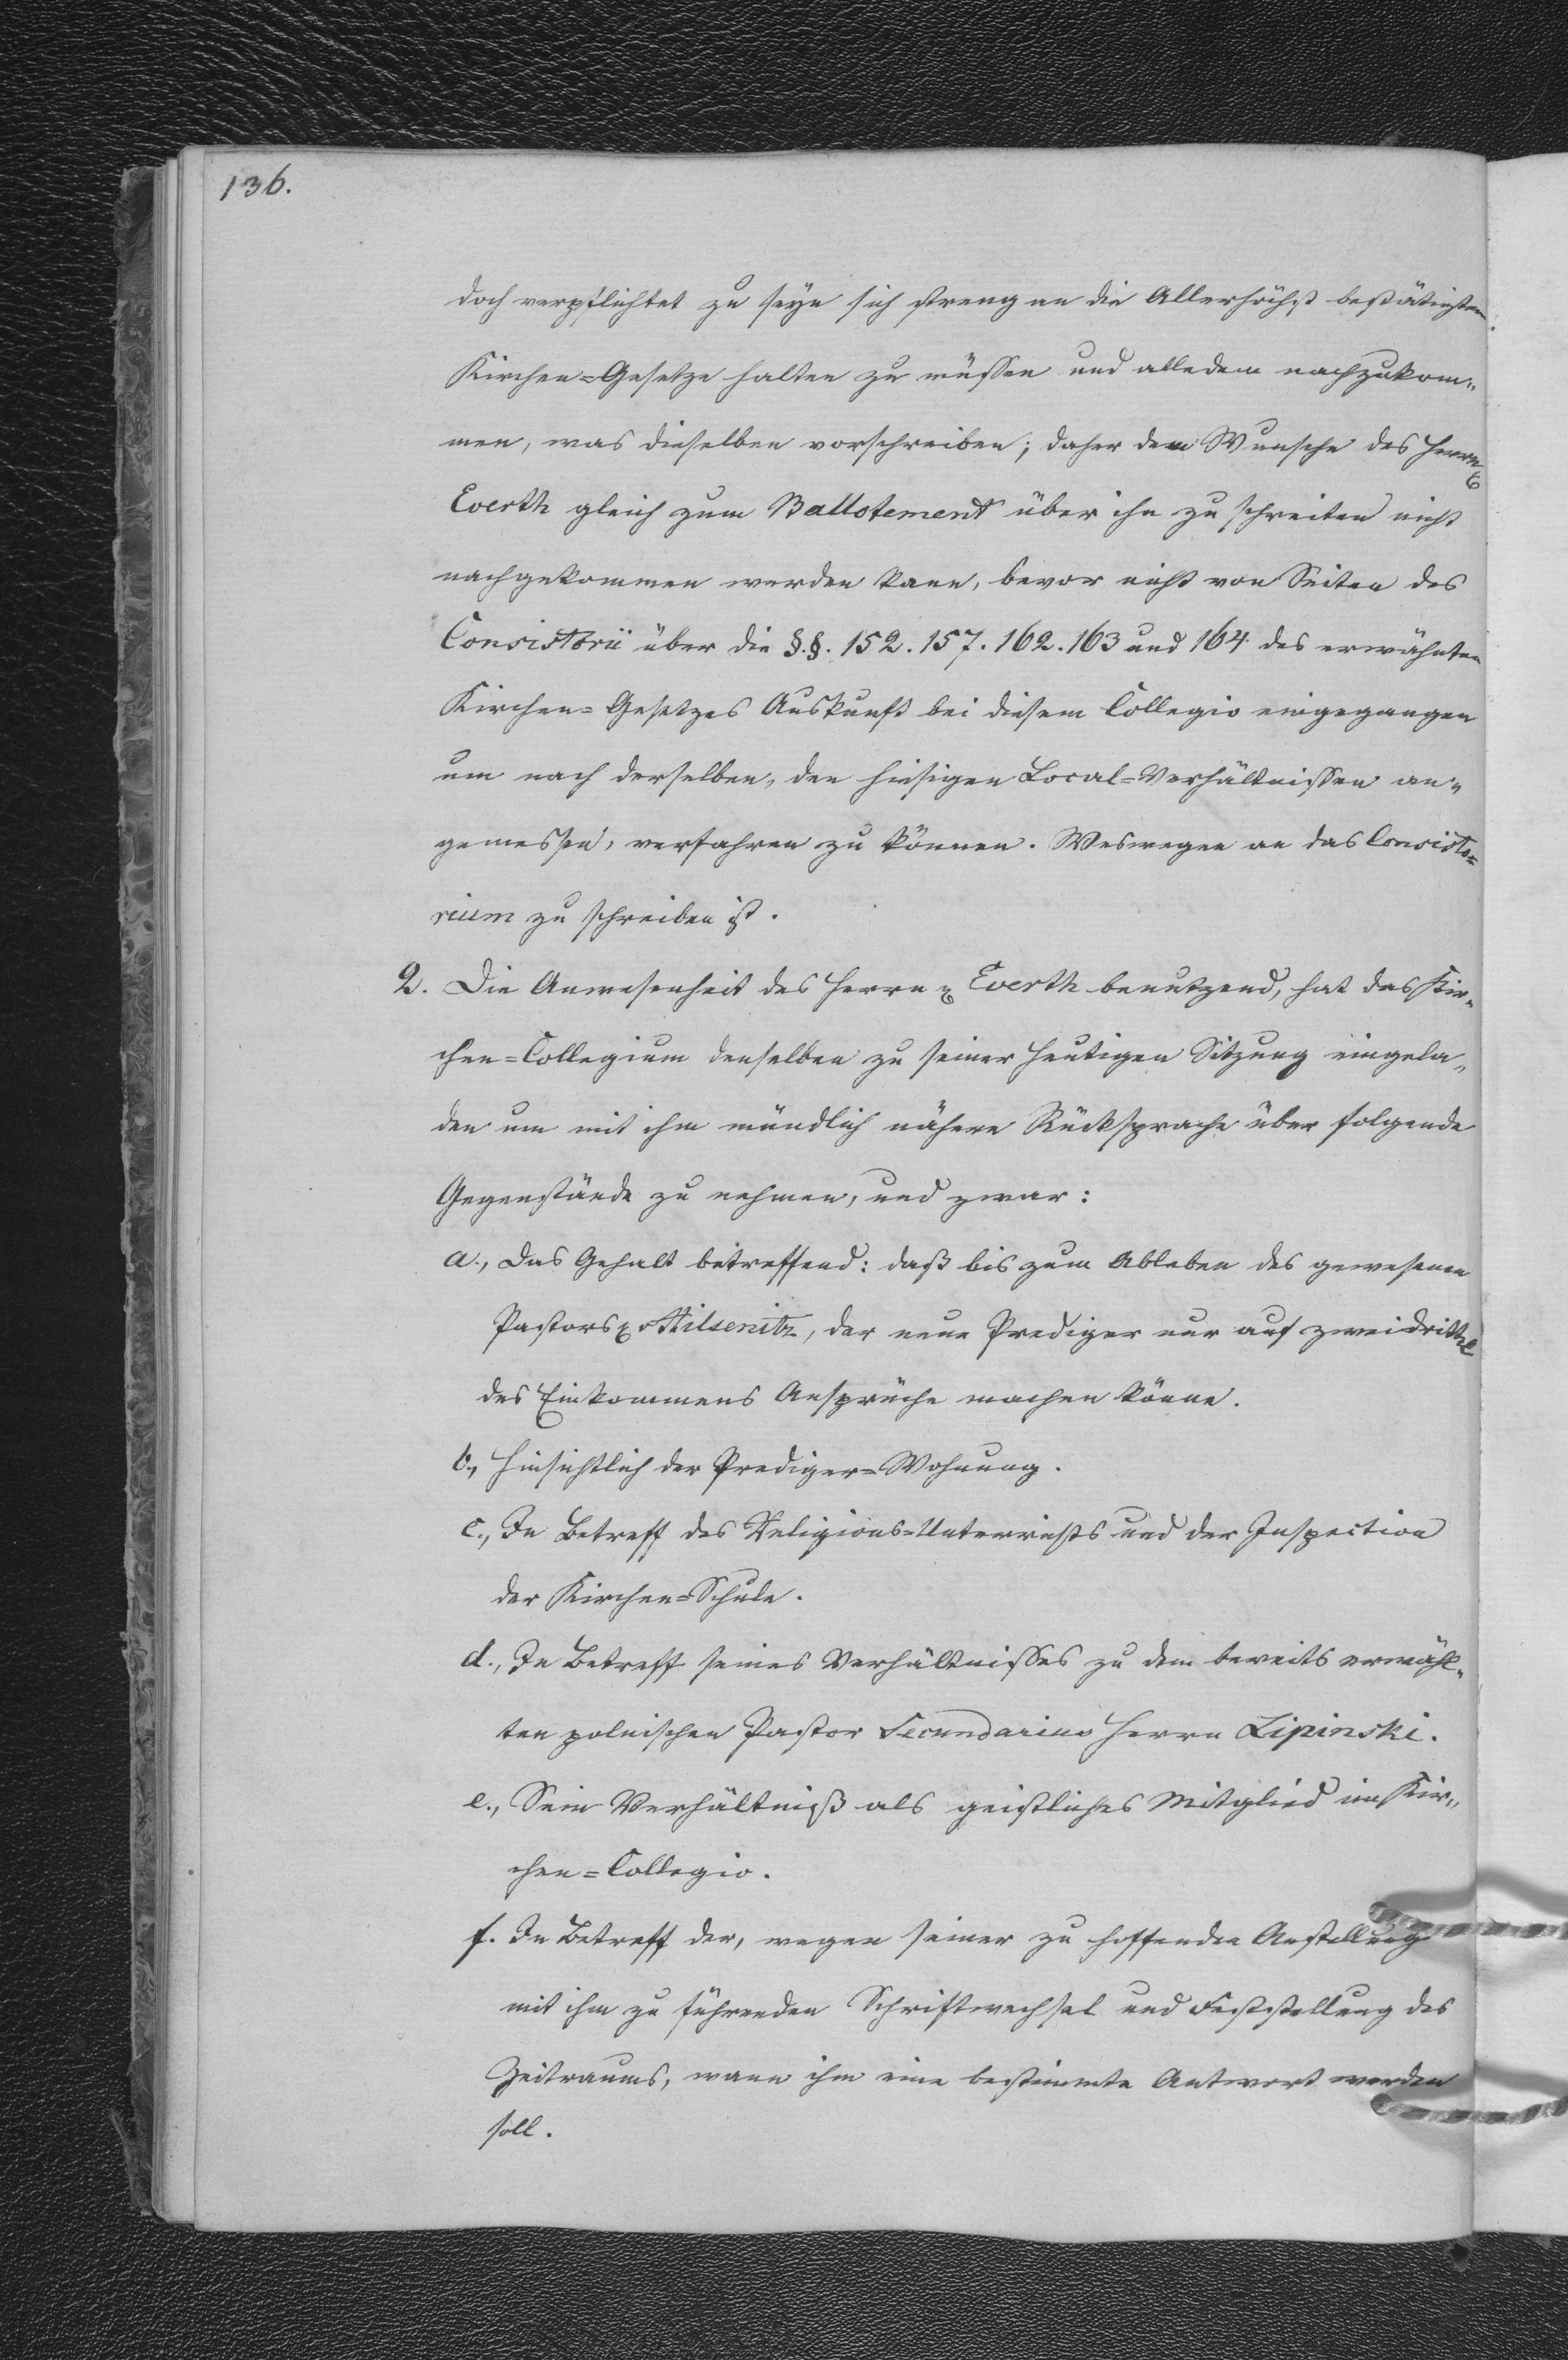 136.
doch verpflichtet zu seyn sich streng an die Allerhöchst bestätigten
Kirchen=Gesetze halten zu müssen und alledem nachzukom„
men, was dieselben vorschreiben; daher dem Wunsche des Herrn
Everth gleich zum Ballotement über ihn zu schreiten nicht
nachgekommen werden kann, bevor nicht von Seiten des
Consistorii über die §.§. 152. 157. 162. 163 und 164 des erwähnten
Kirchen=Gesetzes Auskunft bei diesem Collegio eingegangen
um nach derselben, den hiesigen Local=Verhältnissen an„
gemessen, verfahren zu können. Weswegen an das Consisto=
rium zu schreiben ist.
2. Die Anwesenheit des Herrn Everth benutzend, hat das Kir„
chen=Collegium denselben zu seiner heutigen Sitzung eingela„
den um mit ihm mündlich nähere Rücksprache über folgende
Gegenstände zu nehmen, und zwar:
a., Das Gehalt betreffend: daß bis zum Ableben des gewesenen
Pastors Nilsenitz, der neue Prediger nur auf zweidrittel
des Einkommens Ansprüche machen könne.
b., Hinsichtlich der Prediger=Wohnung.
c., In Betreff des Religions=Unterrichts und der Inspection
der Kirchen=Schule.
d., In Betreff seines Verhältnisses zu dem bereits erwähl„
ten polnischen Pastor Secundarius Herrn Lipinski.
e., Sein Verhältniß als geistliches Mitglied im Kir„
chen=Collegio.
f. In Betreff der, wegen seiner zu hoffenden Anstellung
mit ihm zu führenden Schriftwechsel und Feststellung des
Zeitraums, wann ihm eine bestimmte Antwort werden
soll.